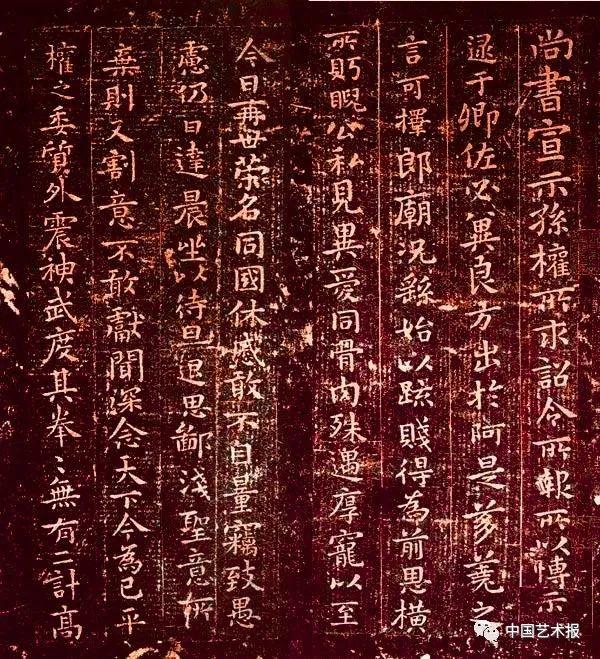 尚書宣示孫權所求詔令所報所以博示
逮于卿佐必冀良方出於阿是芻蕘之
言可擇郎廟況繇始以疏賤得為前恩橫
所貺睨公私見異愛同骨肉殊遇厚寵以至
今日再世榮名同國休慼敢不自量竊致愚
慮仍日達晨坐以待旦退思鄙淺聖意所
棄則又割意不敢獻聞深念天下今為已平
權之委質外震神武度其拳〻無有二計高
中国艺术报